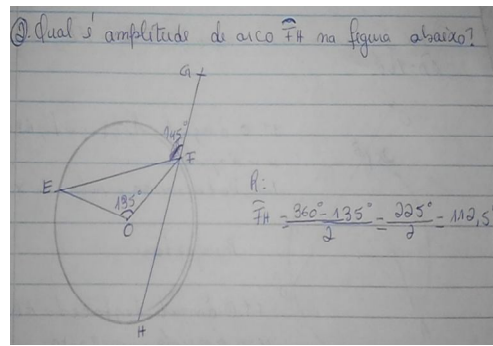 2. Qual é amplitude de arco FH na figura abaixo?
G
145°
F
E
135°
O
R:
FH = 360° - 135° = 225° = 112,5°
2 2
H